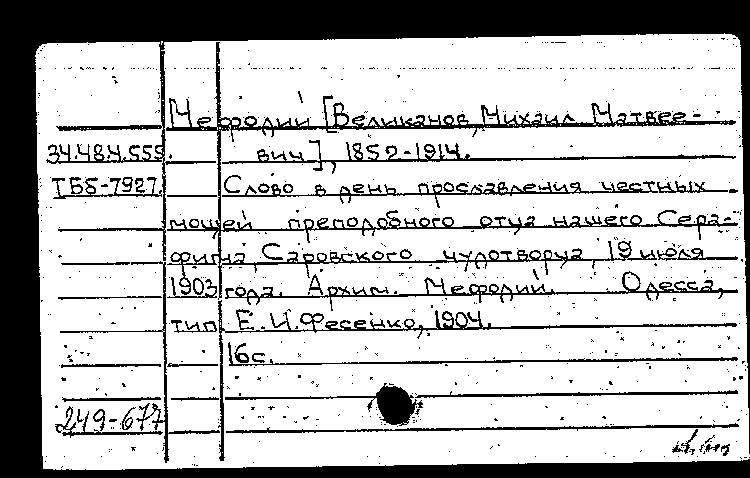 Мефодий [Великанов, Михаил Матвее-
34.48.4.555. вич], 1852-1914.
ТБ5-7927. Слово в день прославления честных
мощей преподобного отца нашего Сера-
фима, Саровского чудотворца, 19 июля
1903 года. Архим. Мефодий. Одесса,
тип. Е.И.Фесенко, 1904.
16с.
249-677